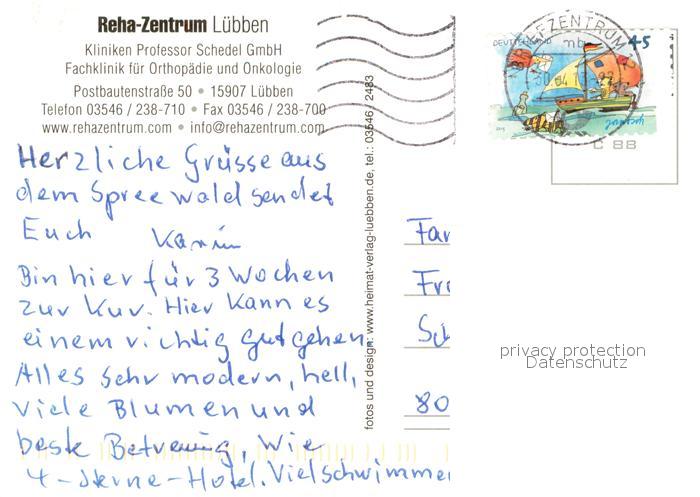 Reha-Zentrum Lübben
Kliniken Professor Schedel GmbH
Fachklinik für Orthopädie und Onkologie
Postbautenstraße 50 • 15907 Lübben
Telefon 03546 / 238-710 • Fax 03546 / 238-700
www.rehazentrum.com • info@rehazentrum.com
Herzliche Grüsse aus
dem Spreewald sendet
Euch Karin
Bin hier für 3 Wochen
zur Kur. Hier kann es
einem richtig gut gehen.
Alles sehr modern, hell,
viele Blumen und
beste Betreuung, wie
4-Sterne-Hotel. Viel schwimme
fotos und design: www.heimat-verlag-luebben.de, tel.: 03546 / 2483
EFZENTRUM
DEUTSCHLAND
45
Janosch
C 88
Fam
Fr
80
privacy protection
Datenschutz